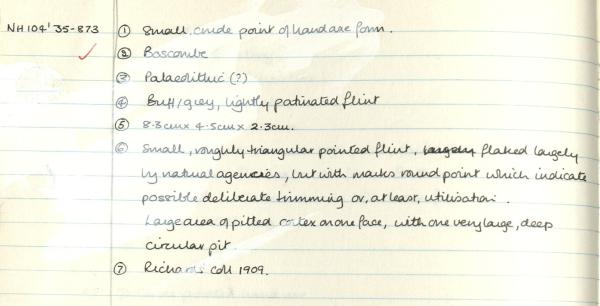 NH104'35-873 ① Small, crude point of handaxe form.
② Boscombe
③ Palaeolithic (?)
④ Buff/grey, lightly patinated flint
⑤ 8.3cm x 4.5cm x 2.3cm.
⑥ Small, roughly triangular pointed flint, largely flaked largely
by natural agencies, but with marks round point which indicate
possible deliberate trimming or, at least, utilisation.
Large area of pitted cortex on one face, with one very large, deep
circular pit.
⑦ Richards coll 1909.